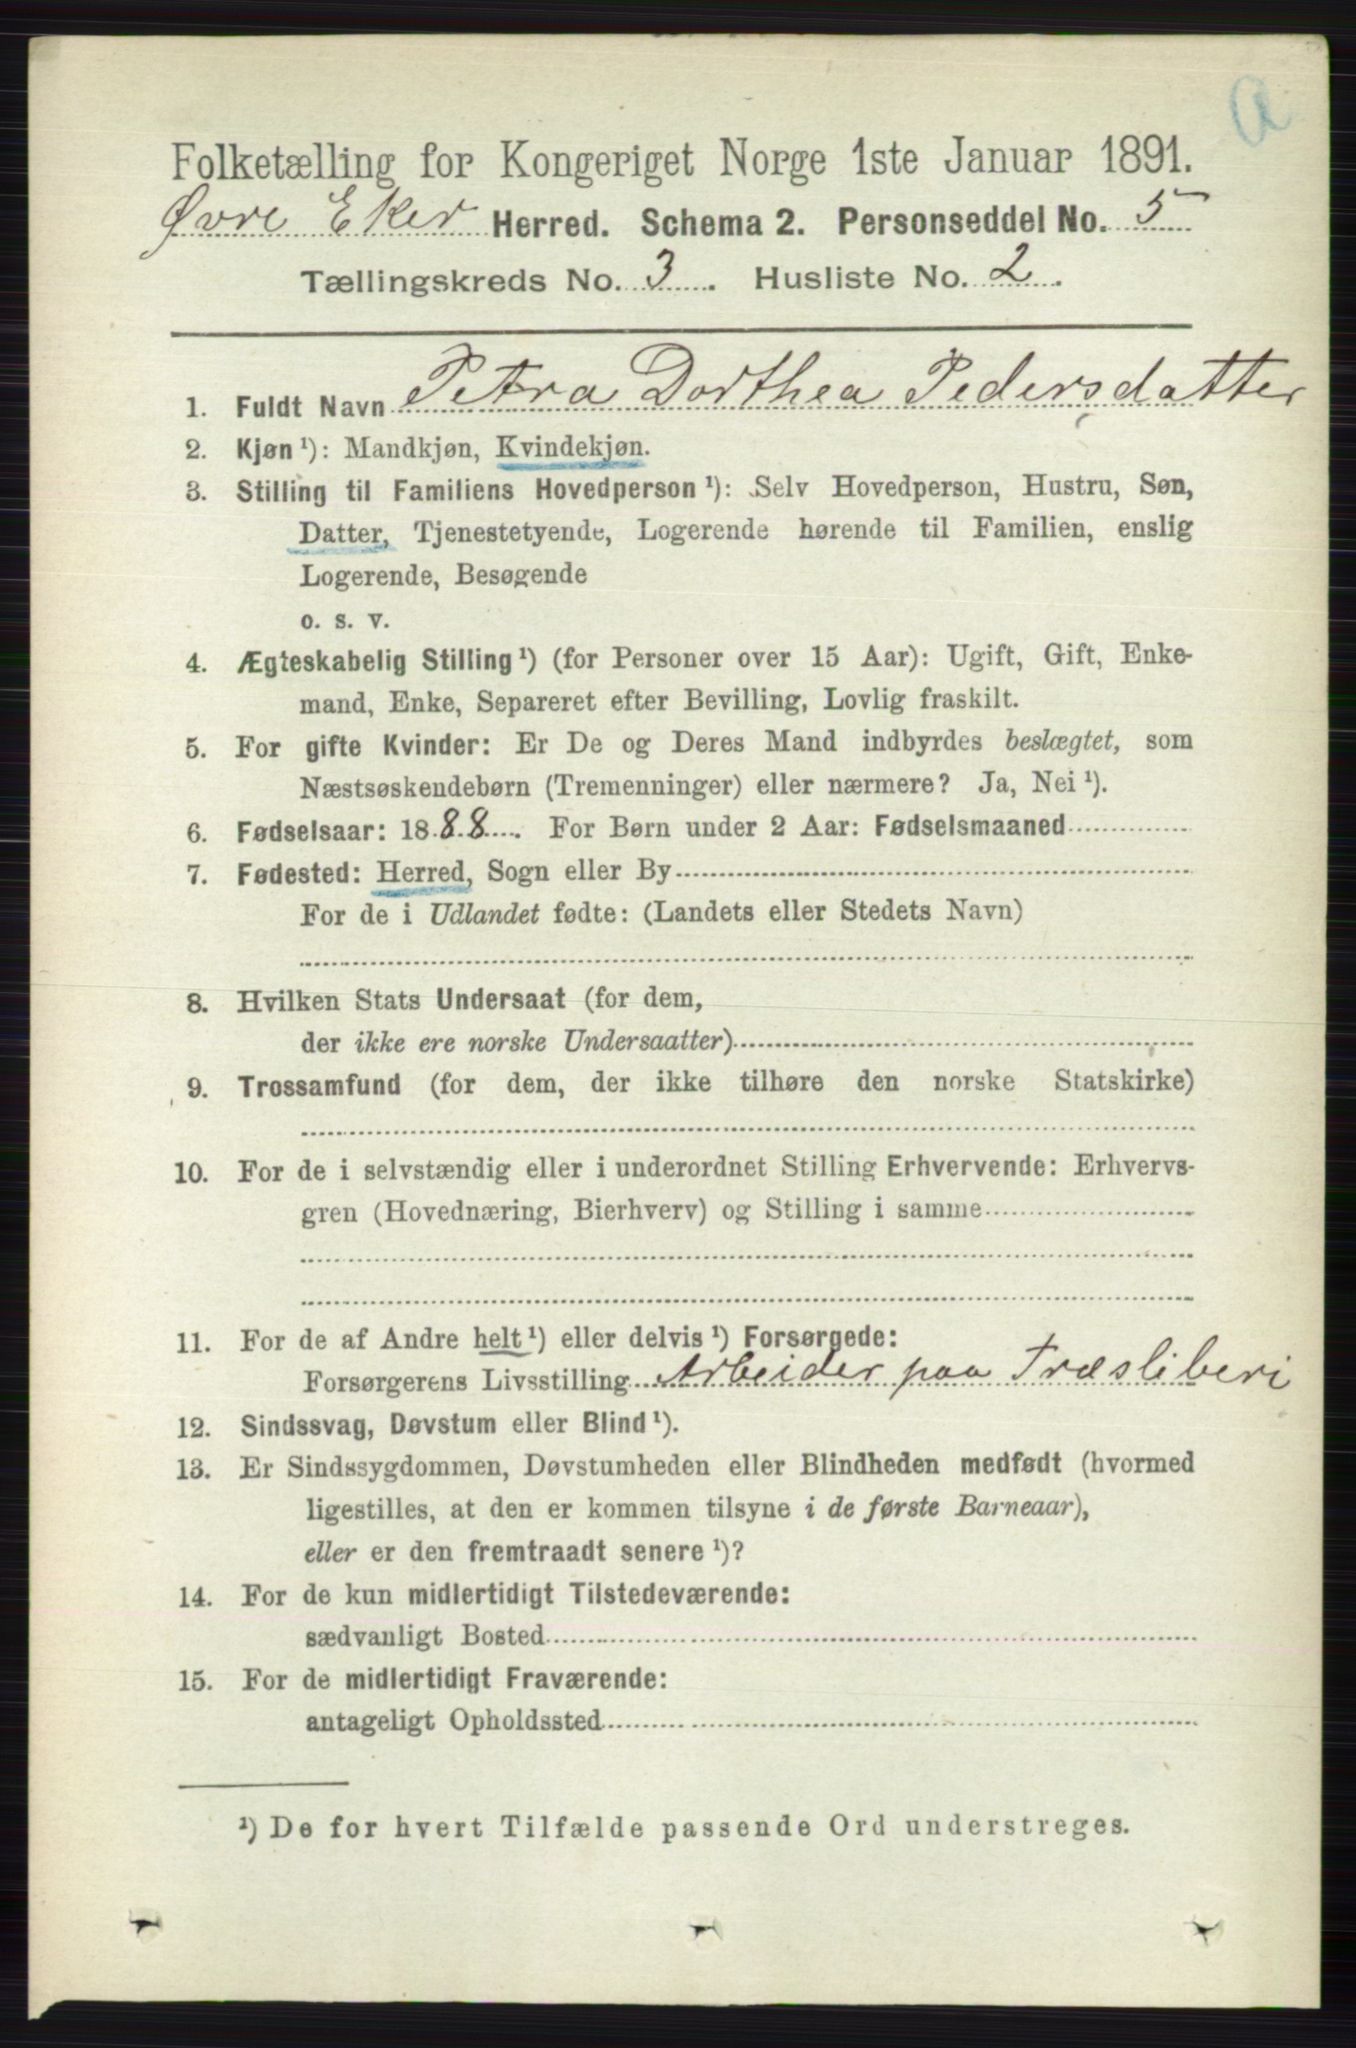 a
Folketælling for Kongeriget Norge 1ste Januar 1891.
Øvre Eker Herred. Schema 2. Personseddel No. 5
Tællingskreds No. 3. Husliste No. 2.
1. Fuldt Navn Petra Dorthea Pedersdatter
2. Kjøn ¹): Mandkjøn, Kvindekjøn.
3. Stilling til Familiens Hovedperson ¹): Selv Hovedperson, Hustru, Søn,
Datter, Tjenestetyende, Logerende hørende til Familien, enslig
Logerende, Besøgende
o. s. v.
4. Ægteskabelig Stilling ¹) (for Personer over 15 Aar): Ugift, Gift, Enke-
mand, Enke, Separeret efter Bevilling, Lovlig fraskilt.
5. For gifte Kvinder: Er De og Deres Mand indbyrdes beslægtet, som
Næstsøskendebørn (Tremenninger) eller nærmere? Ja, Nei ¹).
6. Fødselsaar: 1888. For Børn under 2 Aar: Fødselsmaaned
7. Fødested: Herred, Sogn eller By
For de i Udlandet fødte: (Landets eller Stedets Navn)
8. Hvilken Stats Undersaat (for dem,
der ikke ere norske Undersaatter)
9. Trossamfund (for dem, der ikke tilhøre den norske Statskirke)
10. For de i selvstændig eller i underordnet Stilling Erhvervende: Erhvervs-
gren (Hovednæring, Bierhverv) og Stilling i samme
11. For de af Andre helt ¹) eller delvis ¹) Forsørgede:
Forsørgerens Livsstilling Arbeider paa Træsliberi
12. Sindssvag, Døvstum eller Blind ¹).
13. Er Sindssygdommen, Døvstumheden eller Blindheden medfødt (hvormed
ligestilles, at den er kommen tilsyne i de første Barneaar),
eller er den fremtraadt senere ¹)?
14. For de kun midlertidigt Tilstedeværende:
sædvanligt Bosted
15. For de midlertidigt Fraværende:
antageligt Opholdssted
¹) De for hvert Tilfælde passende Ord understreges.